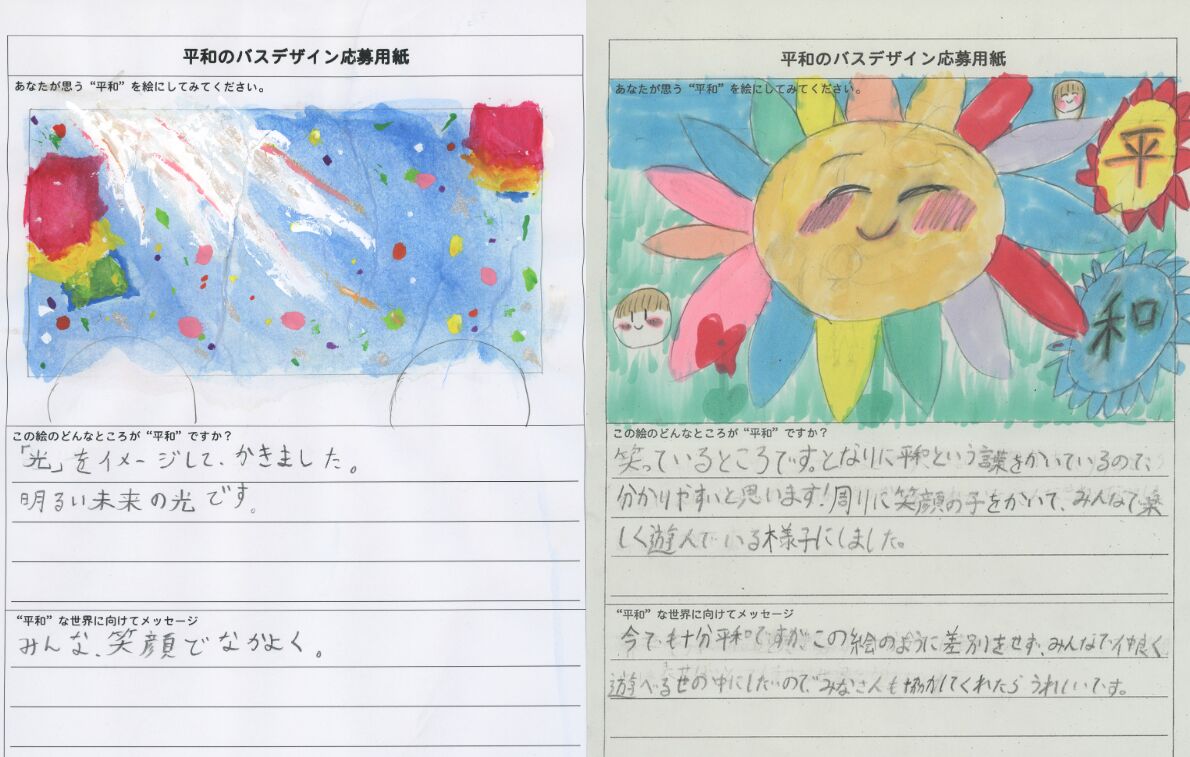 平和のバスデザイン応募用紙
あなたが思う“平和”を絵にしてみてください。
この絵のどんなところが“平和”ですか？
「光」をイメージして、かきました。
明るい未来の光です。
“平和”な世界に向けてメッセージ
みんな、笑顔でなかよく。
平和のバスデザイン応募用紙
あなたが思う“平和”を絵にしてみてください。
平
和
この絵のどんなところが“平和”ですか？
笑っているところです。となりに平和という言葉をかいているので、
分かりやすいと思います！周りに笑顔の子をかいて、みんなで楽
しく遊んでいる様子にしました。
“平和”な世界に向けてメッセージ
今でも十分平和ですが、この絵のように差別をせず、みんなで仲良く
遊べる世の中にしたいので、みなさんも協力してくれたらうれしいです。